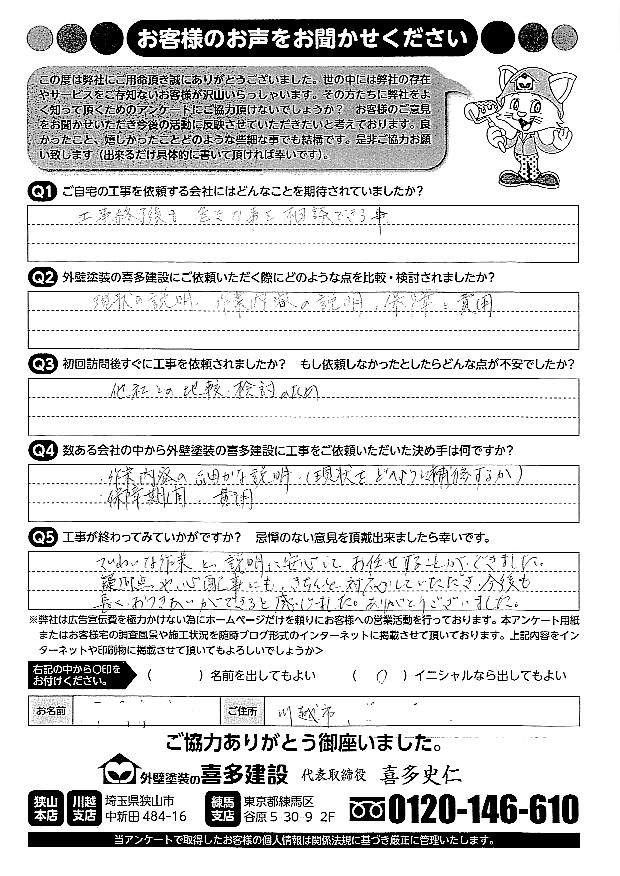 お客様のお声をお聞かせください
この度は弊社にご用命頂き誠にありがとうございました。世の中には弊社の存在
やサービスをご存知ないお客様が沢山いらっしゃいます。その方たちに弊社をよ
く知って頂くためのアンケートにご協力頂けないでしょうか？ お客様のご意見
をお聞かせいただき今後の活動に反映させていただきたいと考えております。良
かったこと、嬉しかったことどのような些細な事でも結構です。是非ご協力お願
い致します（出来るだけ具体的に書いて頂ければ幸いです）。
Q1 ご自宅の工事を依頼する会社にはどんなことを期待されていましたか？
工事終了後も 色々な事を相談できる事
Q2 外壁塗装の喜多建設にご依頼いただく際にどのような点を比較・検討されましたか？
現状の説明、作業内容の説明、保障と費用
Q3 初回訪問後すぐに工事を依頼されましたか？ もし依頼しなかったとしたらどんな点が不安でしたか？
他社との比較・検討のため
Q4 数ある会社の中から外壁塗装の喜多建設に工事をご依頼いただいた決め手は何ですか？
・作業内容の細かな説明（現状をどのように補修するか）
・保障期間 費用
Q5 工事が終わってみていかがですか？ 忌憚のない意見を頂戴出来ましたら幸いです。
ていねいな作業と、説明に安心して お任せすることができました。
疑問点や心配事にも、きちんと対応していただき、今後も
長くおつきあいができると感じました。ありがとうございました。
※弊社は広告宣伝費を極力かけない為にホームページだけを頼りにお客様への営業活動を行っております。本アンケート用紙
またはお客様宅の調査風景や施工状況を随時ブログ形式のインターネットに掲載させて頂いております。上記内容をイン
ターネットや印刷物に掲載させて頂いてもよろしいでしょうか>
右記の中から〇印を
お付けください。 （ ）名前を出してもよい （ 〇 ）イニシャルなら出してもよい
お名前 ご住所 川越市
ご協力ありがとう御座いました。
外壁塗装の喜多建設 代表取締役 喜多史仁
狭山本店 川越支店 埼玉県狭山市中新田 484-16 練馬支店 東京都練馬区谷原 5-30-9 2F 0120-146-610
当アンケートで取得したお客様の個人情報は関係法規に基づき厳正に管理いたします。